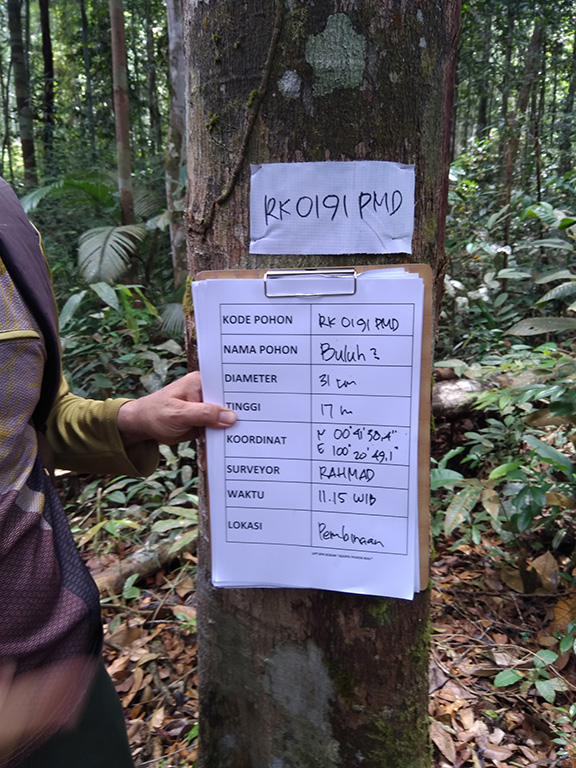 RK 0191 PMD
KODE POHON RK 0191 PMD
NAMA POHON Buluh ?
DIAMETER 31 cm
TINGGI 17 m
KOORDINAT N 00°41'30,4"
E 100°20'49,1"
SURVEYOR RAHMAD
WAKTU 11.15 WIB
LOKASI Pembinaan